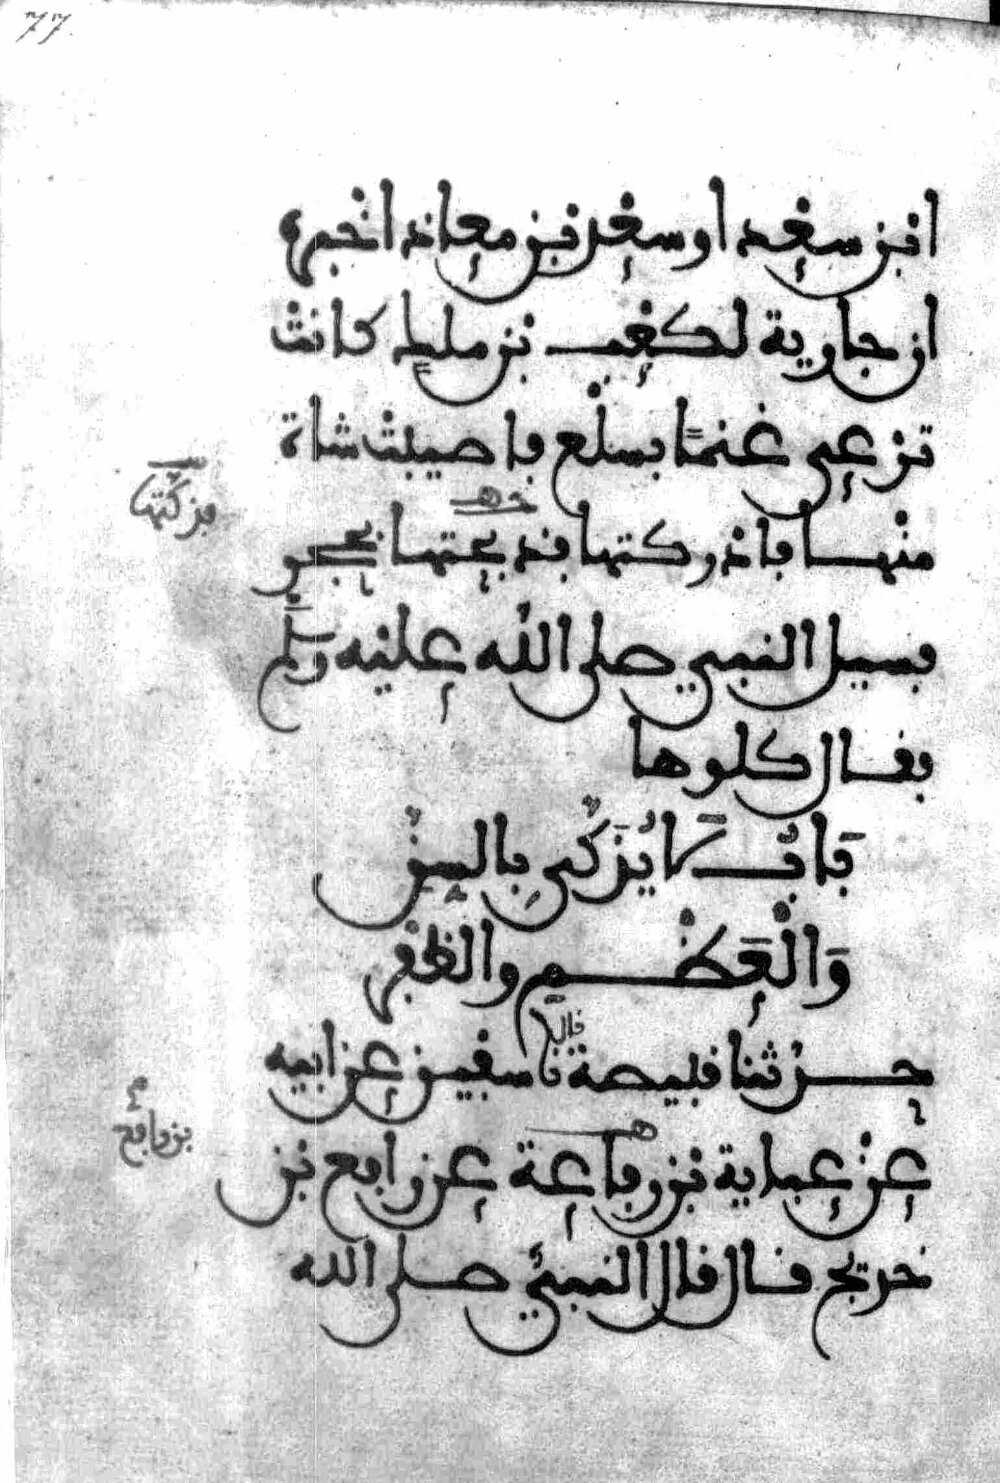 77
ابن سعد او سعد بن معاذ اخبره
ان جارية لكعب بن ملك كانت
ترعى غنما بسلع فاصيبت شاة
فزكتها
منها فادركتها فذبحتها بحجر
فسيل النبي صلى الله عليه وسلم
فقال كلوها
بَابٌ لَا يُزَكَّى بِالسِّنِّ
وَالْعَظْمِ والظفر
قال
حدثنا قبيصة نا سفين عن ابيه
عن عباية بن رفاعة عن رافع بن
بن رافع
خديج قال قال النبي صلى الله